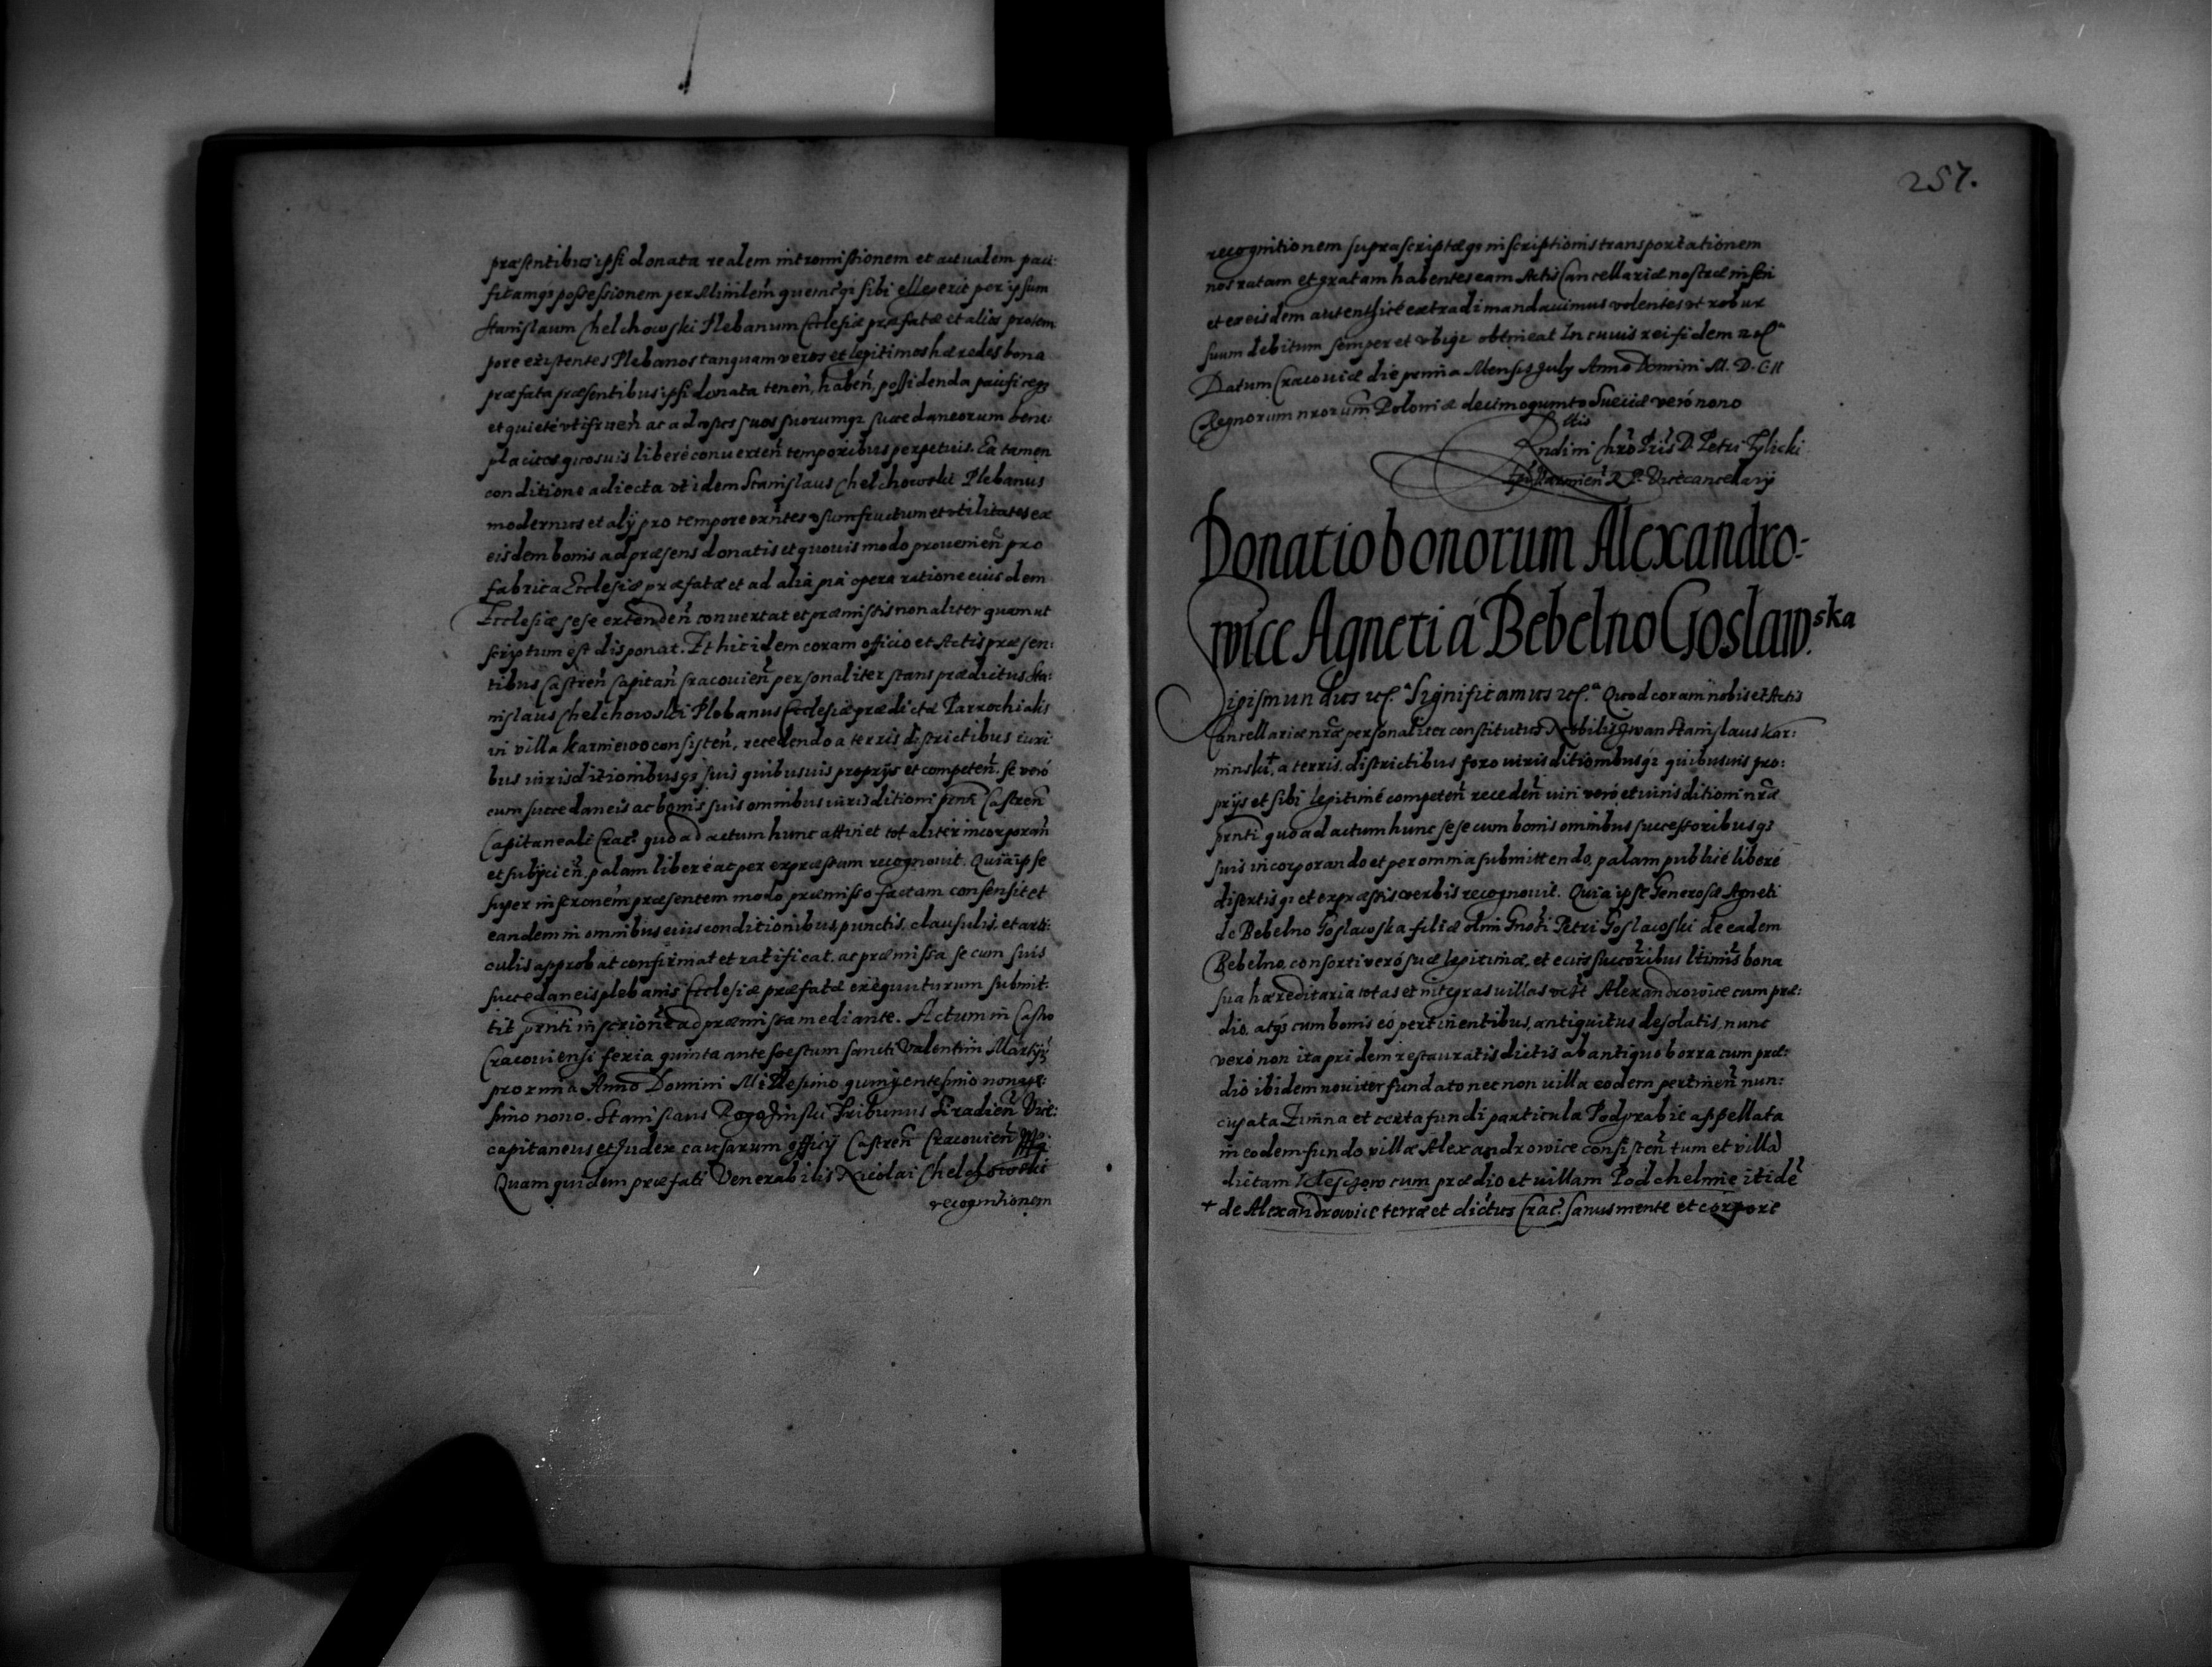 præsentibus ipsi donata realem intromissionem et actualem paci:
ficamq3 possessionem per Ministerialem quemcq3 sibi ellegerit per ipsum
Stanislaum Chelchowski Plebanum Ecclesiæ præfatæ et alios pro tem
pore existentes Plebanos tanquam veros et legitimos hæredes bona
præfata præsentibus ipsi donata tenen̄, haben̄, possidenda pacificeq3
et quietè utifruen̄ ac ad usus suos suorumq3 succedaneorum bene:
placitosq3 suis liberè conuerten̄ temporibus perpetuis. Ea tamen
conditione adiecta ut idem Stanislaus Chelchowski Plebanus
modernus et alÿ pro tempore exn̄tes usumfructum et utilitates ex
eisdem bonis ad præsens donatis et quouis modo prouenien̄ pro
fabrica Ecclesiæ præfatæ et ad alia pia opera ratione eiusdem
Ecclesiæ sese extenden̄ conuertat et præmissis non aliter quam ut
scriptum est disponat. Et hic idem coram officio et Actis præsen:
tibus Castren̄ Capitan̄ Cracouien̄ personaliter stans prædictus Sta:
nislaus Chelchowski Plebanus Ecclesiæ prædictæ Parrochialis
in villa karniewo consisten̄, recedendo a terris districtibus iuri
bus iurisditionibusq3 suis quibusuis proprÿs et competen̄. se verò
cum succedaneis ac bonis suis omnibus iurisditioni pn̄ti Castren̄
Capitaneali Crac: quo ad actum hunc attinet totaliter incorporan̄
et subÿcien̄. palam liberè ac per expræssum recognouit. Quia ipse
super inscrōnem præsentem modo præmisso factam consensit et
eandem in omnibus eius conditionibus, punctis, clausulis, et arti:
culis approbat confirmat et ratificat. ac præmissa se cum suis
succedaneis plebanis Ecclesiæ præfatæ exequuturum submit:
tit pn̄ti inscrione ad præmissa mediante. Actum in Castro
Cracouiensi feria quinta ante foestum sancti Valentini Martÿris
proxima Anno Domini Millesimo quingentesimo nonage:
simo nono. Stanislaus Rogoziński Tribunus Siradien̄ Vice:
capitaneus et Judex causarum officÿ Castren̄ Cracouien̄ mp.
Quam quidem præfati Venerabilis Nicolai Chelchowski
recognitionem
257.
recognitionem suprascriptæq3 inscriptionis transportationem
nos ratam et gratam habentes eam Actis Cancellariæ nostræ inseri
et ex eisdem autenthicè extradi mandauimus volentes ut robur
suum debitum semper et ubiq3 obtineat In cuius rei fidem etc.
Datum Cracouiæ die prima Mensis July Anno Domini M. D. C. II
Regnorum nrorum Poloniæ decimoquinto Sueciæ verò nono
Rndini Chro Pris D. Petri Tylicki
Epi Warmien̄ R. P. Vicecancelarÿ
Donatio bonorum Alexandro-
wice Agneti á Bebelno Goslaw.ska
Sigismundus etc. Significamus etc. Quod coram nobis et Actis
Cancellariæ nr̄æ personaliter constitutus Nobilis Iwan Stanislaus kar:
ninski, a terris, districtibus foro iurisditionibusq3 quibusuis pro:
prÿs et sibi legitimè competen̄ receden̄ iuri verò et iurisditioni nr̄æ
prnti quo ad actum hunc sese cum bonis omnibus successoribusq3
suis incorporando et per omnia submittendo, palam publicè liberè
disertisq3 et expræssis verbis recognouit. Quia ipse Generosæ Agneti
de Bebelno Goslawska filiæ olim Gnosi Petri Goslawski de eadem
Bebelno, consorti verò suæ legitimæ, et eius succoribus ltimis bona
sua hæreditaria totas et integras uillas vide Alexandrowice cum præ:
dio, atq3 cum bonis eó pertinentibus, antiquitus desolatis, nunc
verò non ita pridem restauratis dictis ab antiquo borra cum præ:
dio ibidem nouiter fundato nec non uilla eodem pertinen̄ nun:
cupata Zimna et certa fundi particula Podgrabie appellata
in eodem fundo villæ Alexandrowice consisten̄ tum et villa
dictam kleszczow cum prædio et uillam Podchelmie itidē
+ de Alexandrowice terræ et dictus Crac. sanus mente et corpore